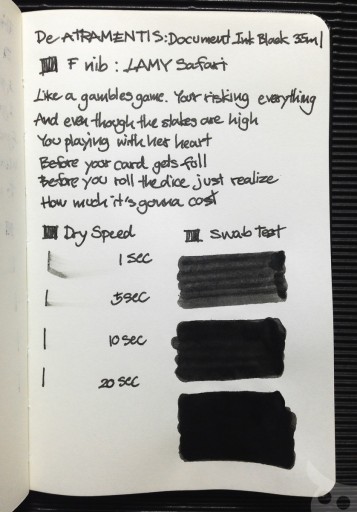 De ATRAMENTIS: Document Ink Black 35ml
F nib : LAMY Safari
Like a gambles game. Your risking everything
And even though the stakes are high
You playing with her heart
Before your card gets fall
Before you roll the dice just realize
How much it's gonna cost
Dry Speed
Swab Test
1 sec
5 sec
10 sec
20 sec